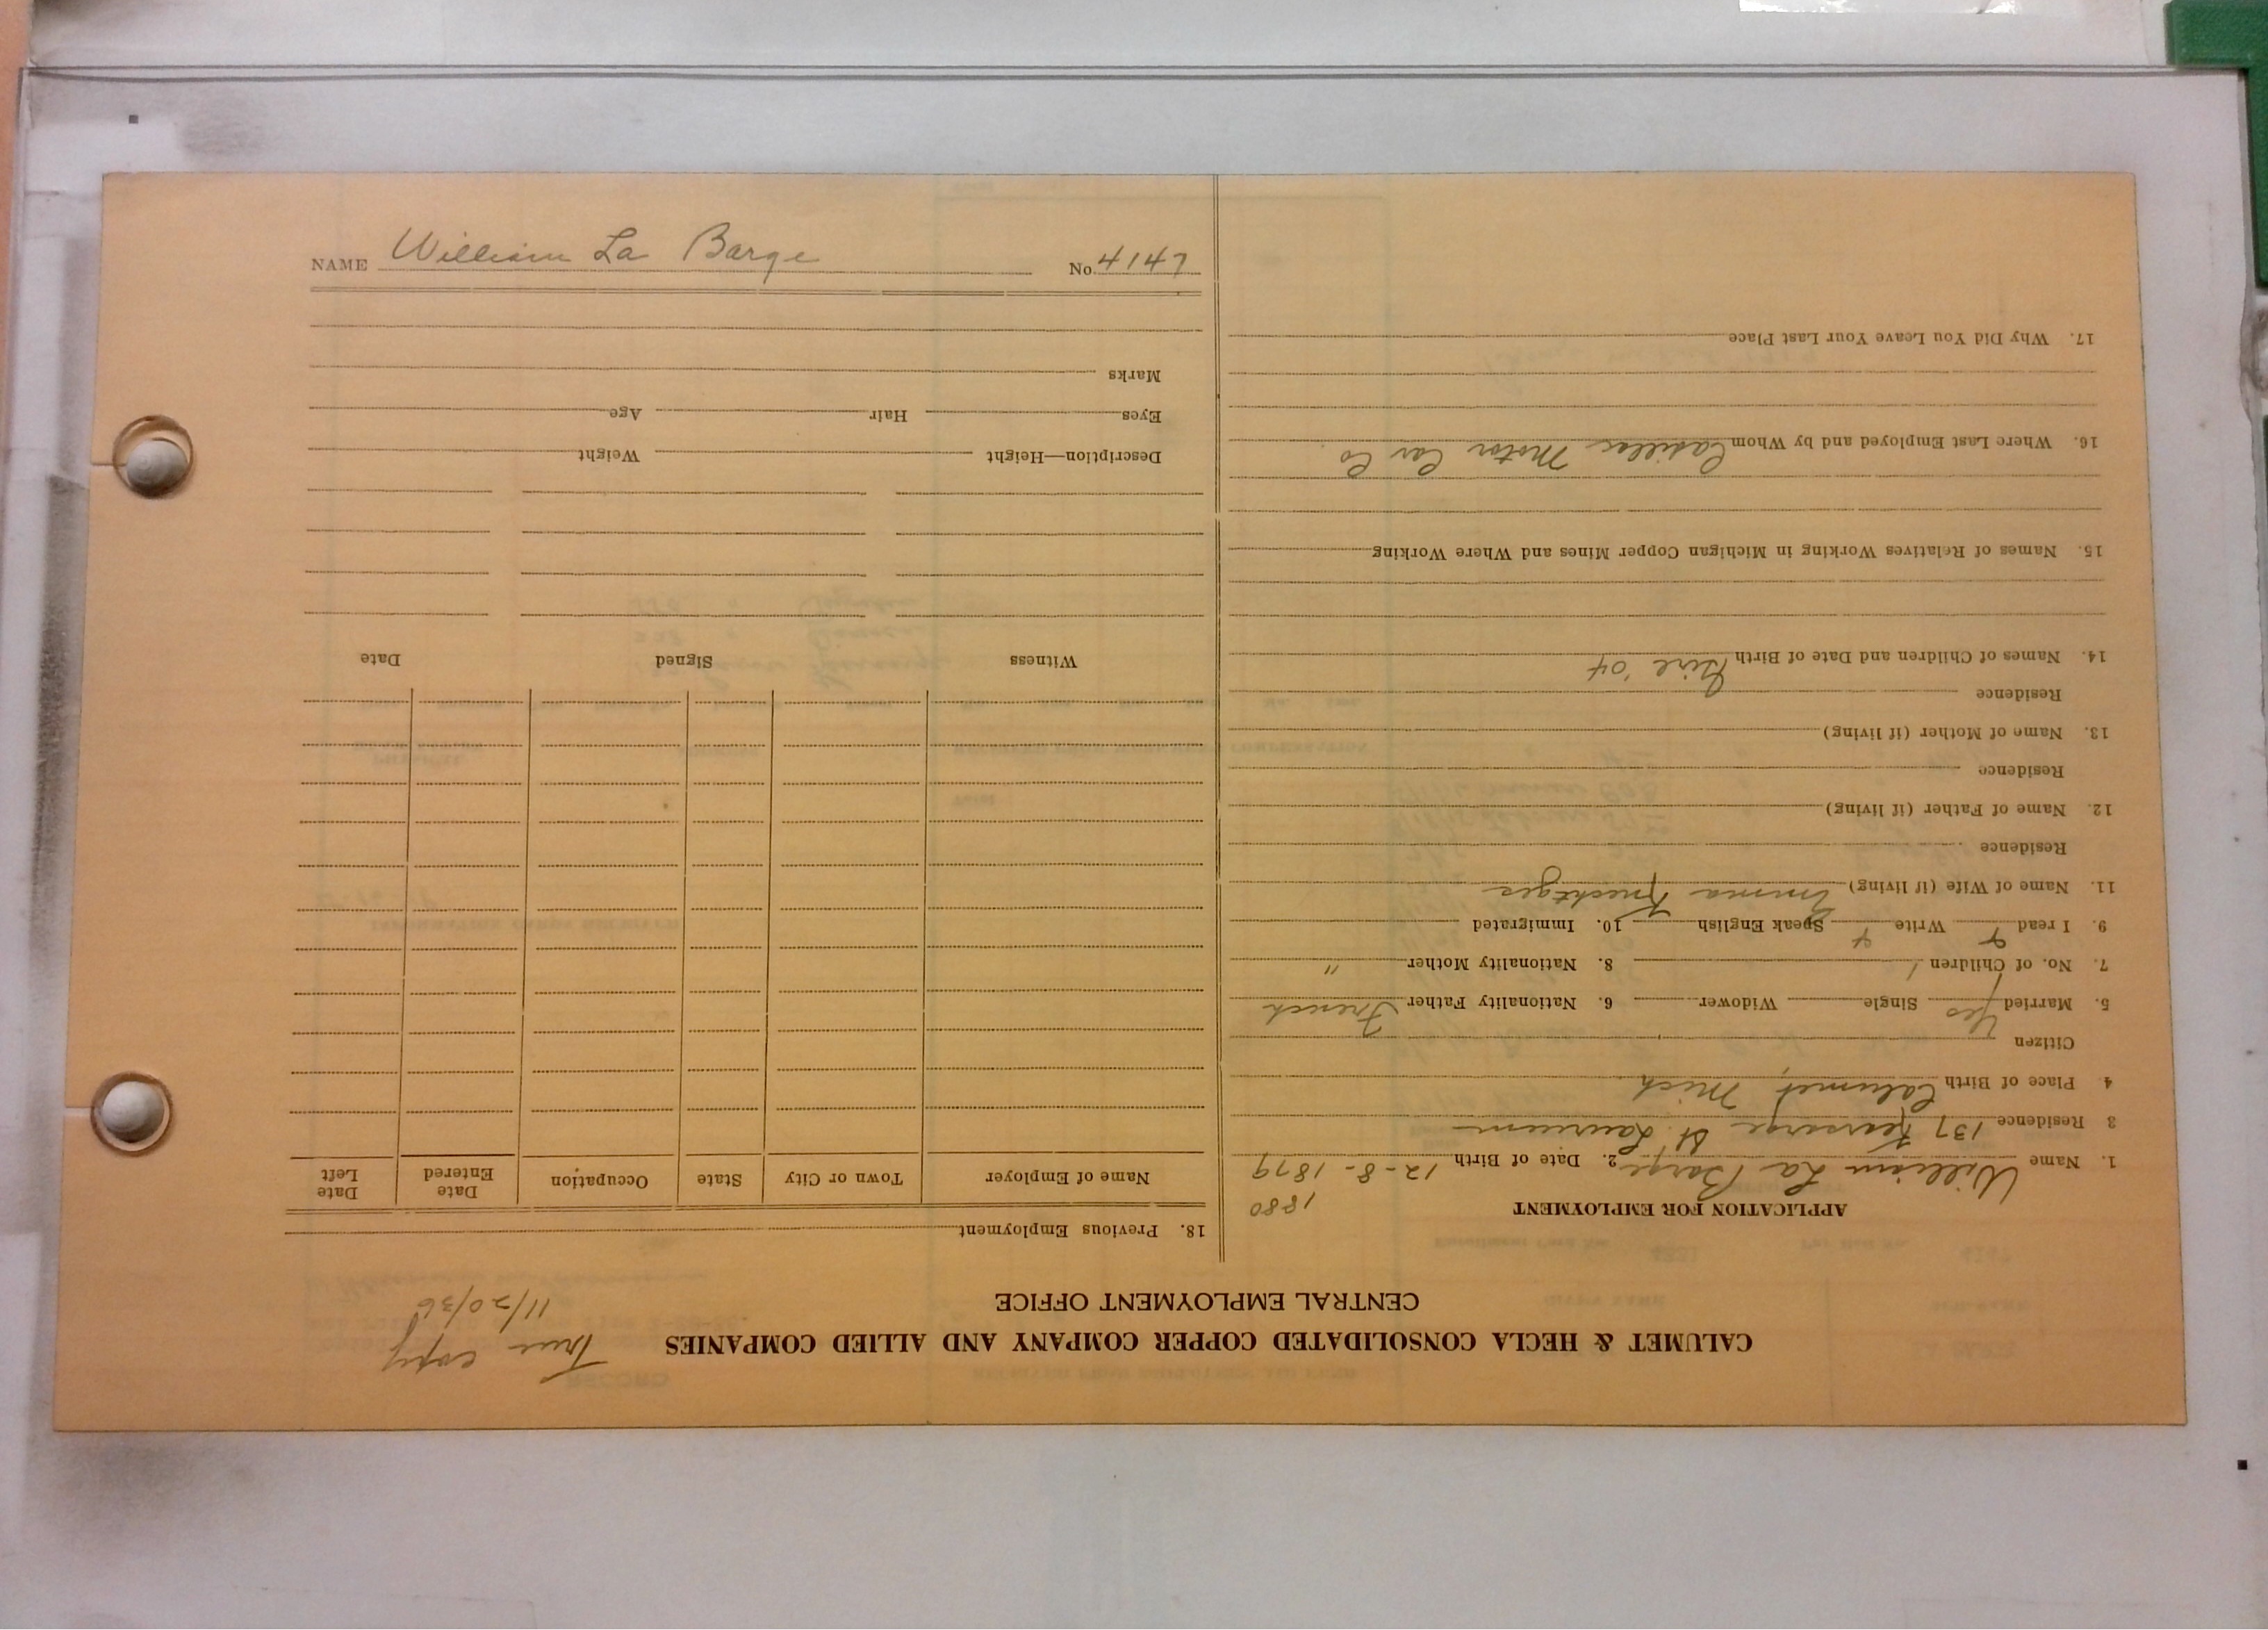 CALUMET & HECLA CONSOLIDATED COPPER COMPANY AND ALLIED COMPANIES
CENTRAL EMPLOYMENT OFFICE
True copy
11/20/36
APPLICATION FOR EMPLOYMENT
1880
1. Name William La Barge 2. Date of Birth 12-8-1879
3 Residence 137 Kearsarge St. Laurium
4. Place of Birth Calumet, Mich
Citizen
5. Married Yes Single Widower 6. Nationality Father French
7. No. of Children 1 8. Nationality Mother "
9. I read Write Speak English 10. Immigrated
11. Name of Wife (if living) Emma
Residence
12. Name of Father (if living)
Residence
13. Name of Mother (if living)
Residence
14. Names of Children and Date of Birth Girl '04
15. Names of Relatives Working in Michigan Copper Mines and Where Working
16. Where Last Employed and by Whom Cadillac Motor Car Co
17. Why Did You Leave Your Last Place
18. Previous Employment
Name of Employer Town or City State Occupation Date Entered Date Left
Witness Signed Date
Description—Height Weight
Eyes Hair Age
Marks
NAME William La Barge No. 4147